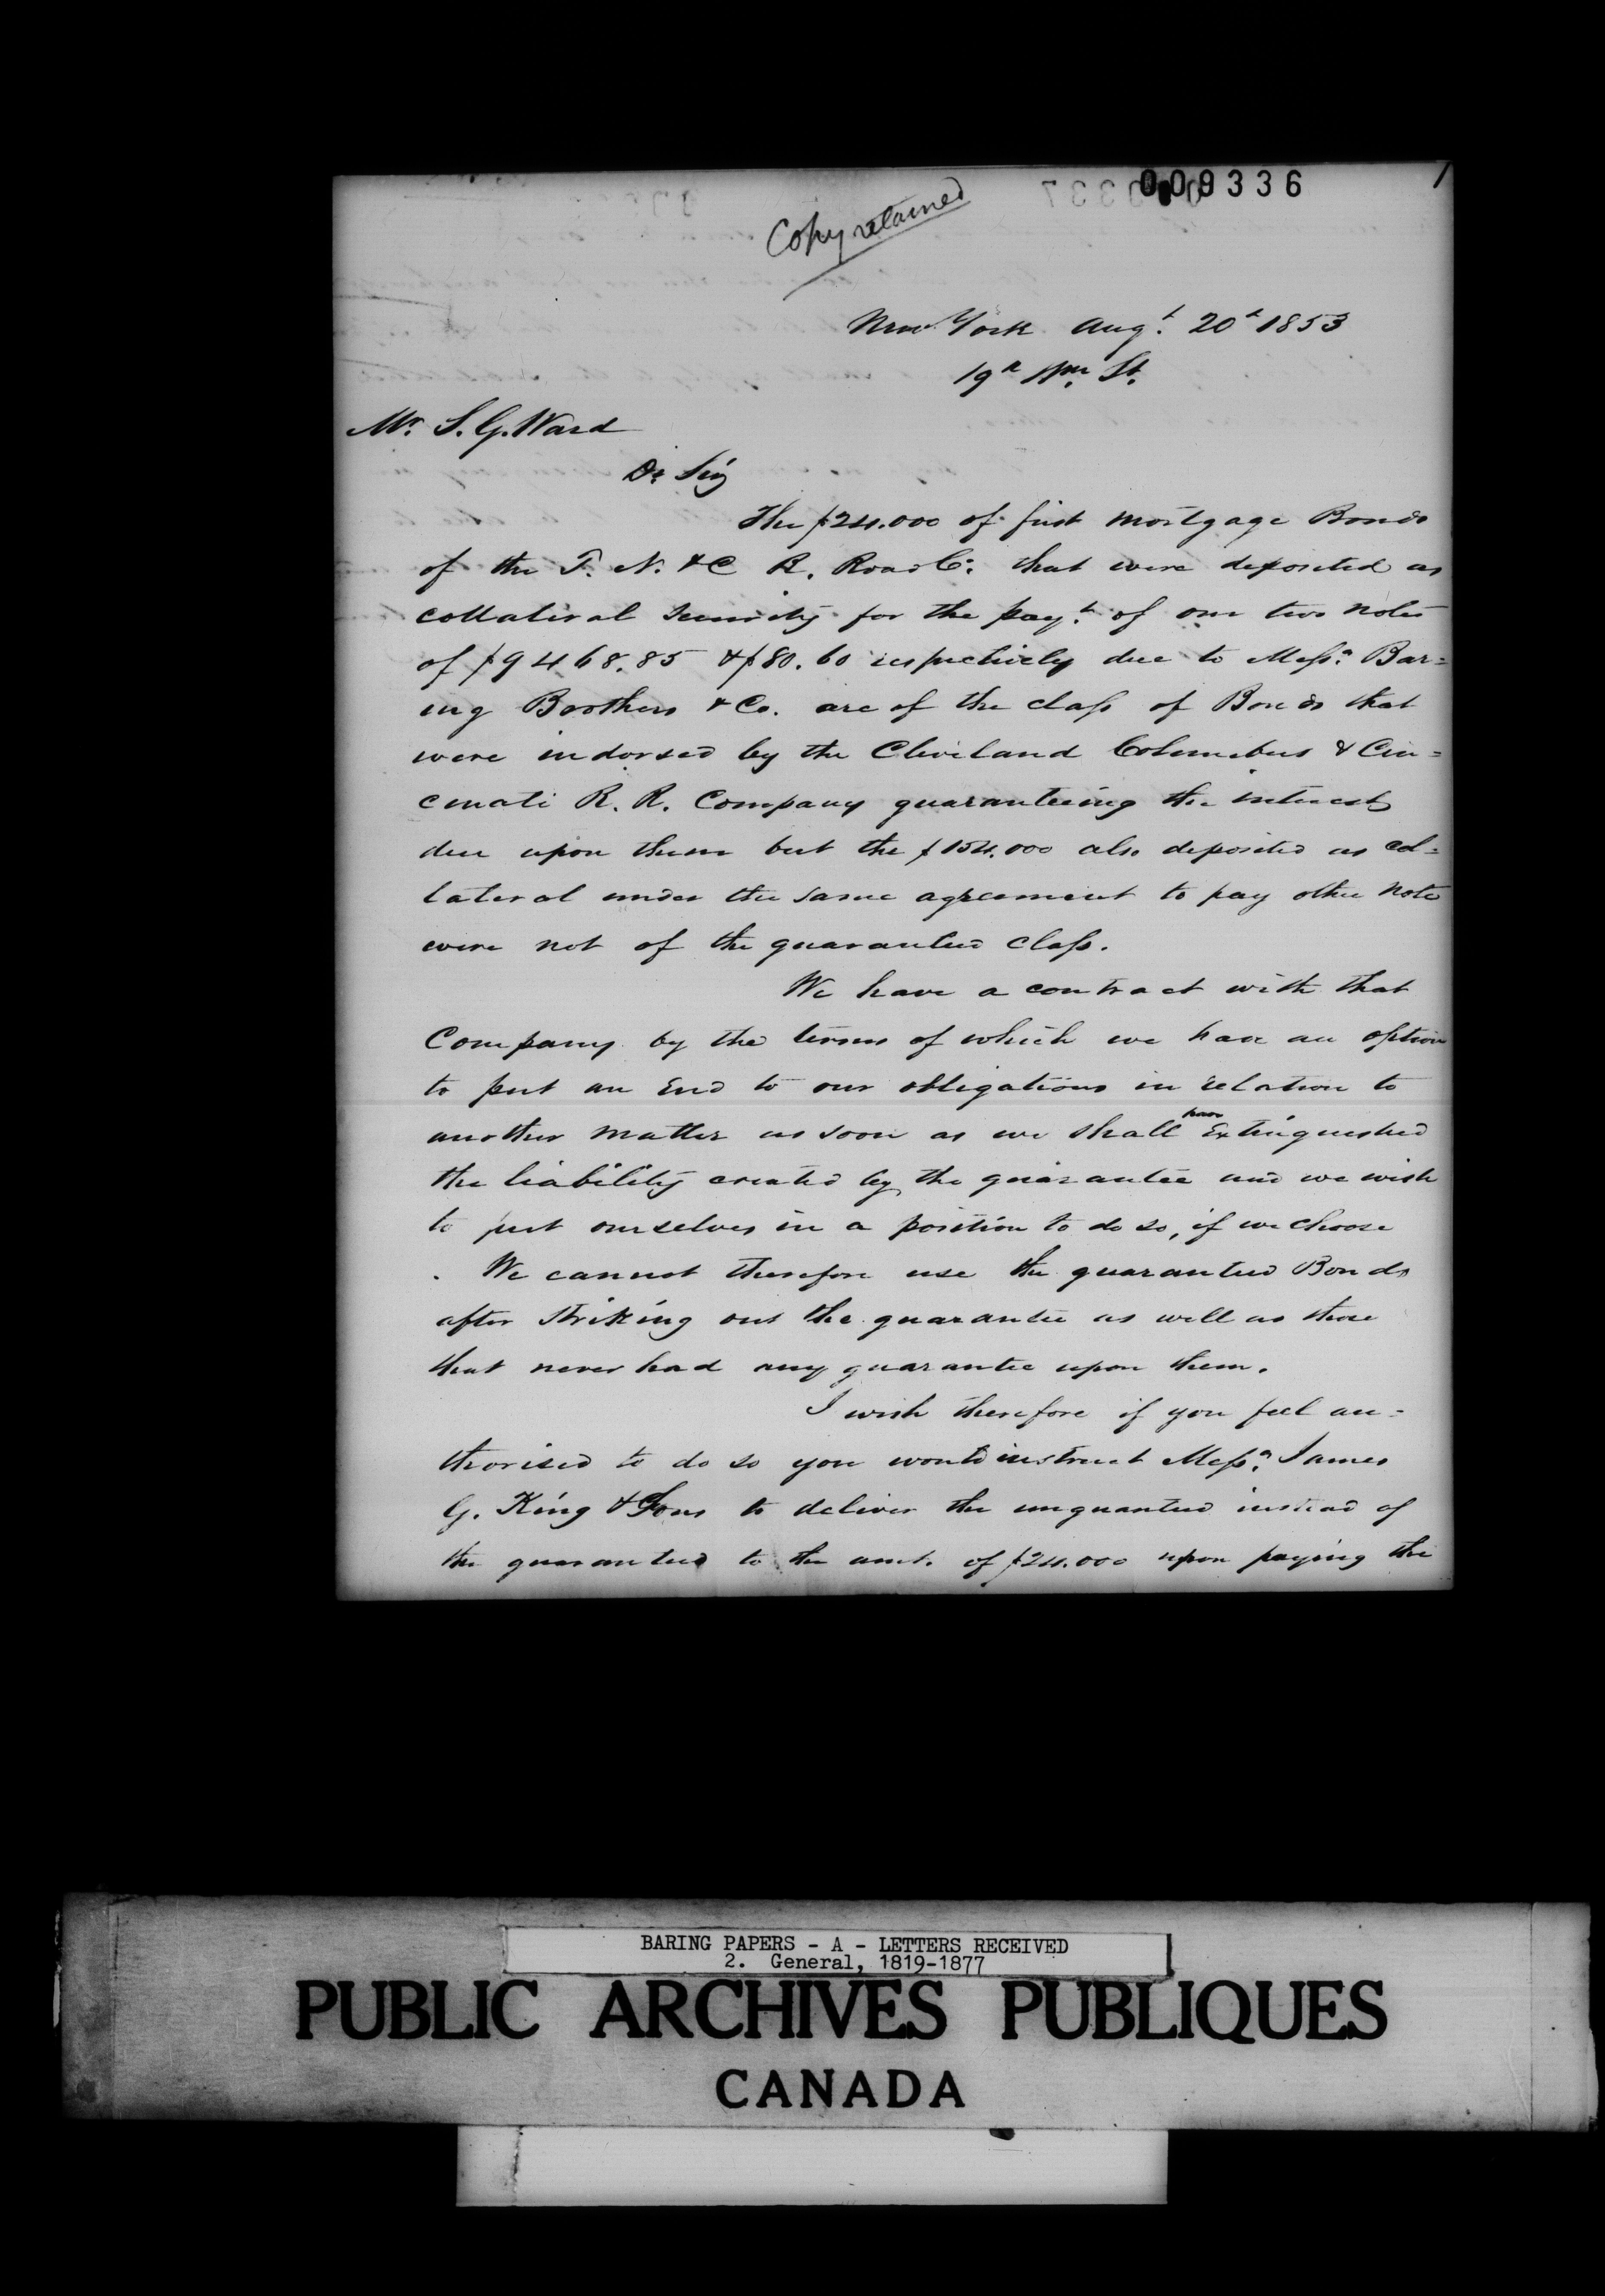 009336
Copy retained
New York Augt. 20t 1853
19 Wm. St.
Mr. S. G. Ward
Dr Sir
The $24.000 of first Mortgage Bonds
of the T. N. & C R. Road Co. that were deposited as
collateral security for the payt. of our two notes
of $9468.85 & $80.60 respectively due to Messrs. Bar=
ing Brothers & Co. are of the class of Bonds that
were indorsed by the Cleveland Columbus & Cin=
cinati R. R. Company guaranteeing the interest
due upon them but the $154.000 also deposited as col=
lateral under the same agreement to pay other note
were not of the guaranteed class.
We have a contract with that
Company by the terms of which we have an option
to put an End to our obligations in relation to
another matter as soon as we shall have Extinguished
the liability created by the guarantee and we wish
to put ourselves in a position to do so, if we choose
. We cannot therefore use the guaranteed Bonds
after striking out the guarantee as well as those
that never had any guarantee upon them.
I wish therefore if you feel au=
thorised to do so you would instruct Messrs. James
G. King & Sons to deliver the unguanteed instead of
the guaranteed to the amt. of $24.000 upon paying the
BARING PAPERS - A - LETTERS RECEIVED
2. General, 1819-1877
PUBLIC ARCHIVES PUBLIQUES
CANADA